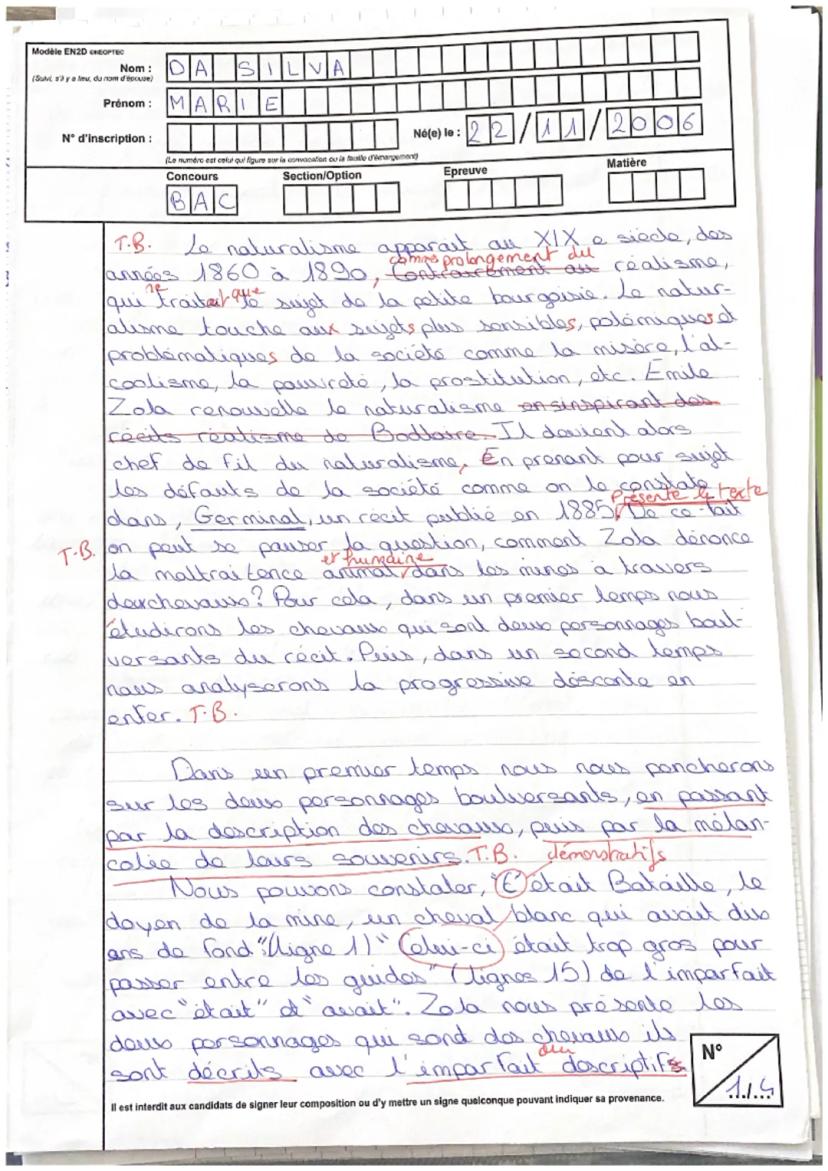 Modèle EN2D ©NEOPTEC
Nom : DA SILVA
(Suivi, s'il y a lieu, du nom d'épouse)
Prénom : MARIE
N° d'inscription :
Né(e) le : 22/11/2006
(Le numéro est celui qui figure sur la convocation ou la feuille d'émargement)
Concours Section/Option Epreuve Matière
BAC
T.B. Le naturalisme apparait au XIX e siècle, des
comme prolongement du
années 1860 à 1890, Contrairement au réalisme,
ne que
qui traitait le sujet de la petite bourgoisie. Le natur-
alisme touche aux sujets plus sensibles, polémiques et
problématiques de la société comme la misère, l'al-
coolisme, la pauvreté, la prostitution, etc. Emile
Zola renouvelle le naturalisme en sinspirant des
récits réalisme de Bodlaire. Il devient alors
chef de fil du naturalisme, En prenant pour sujet
les défauts de la société comme on le constate
présente le texte
dans, Germinal, un récit publié en 1885, De ce fait
T.B. on peut se pauser la question, comment Zola dénonce
et humaine
la maltraitence animal, dans les mines à travers
deux chevaux? Pour cela, dans un premier temps nous
étudirons les chevaux qui sont deux personnages boul-
versants du récit. Puis, dans un second temps
nous analyserons la progressive déscente en
enfer. T.B.
Dans un premier temps nous nous poncherons
sur les deux personnages boulversants, en passant
par la description des chevaux, puis par la mélan-
colie de leurs souvenirs. T.B. démonstratifs
Nous pouvons constater, "C'était Bataille, le
doyen de la mine, un cheval blanc qui avait dix
ans de fond" (ligne 1) "Celui-ci était trop gros pour
passer entre les guides" (lignes 15) de l'imparfait
avec "était" et "avait". Zola nous présente les
deux personnages qui sond des chevaux ils
sont décrits avec l'imparfait descriptifs
N°
1/4
Il est interdit aux candidats de signer leur composition ou d'y mettre un signe quelconque pouvant indiquer sa provenance.